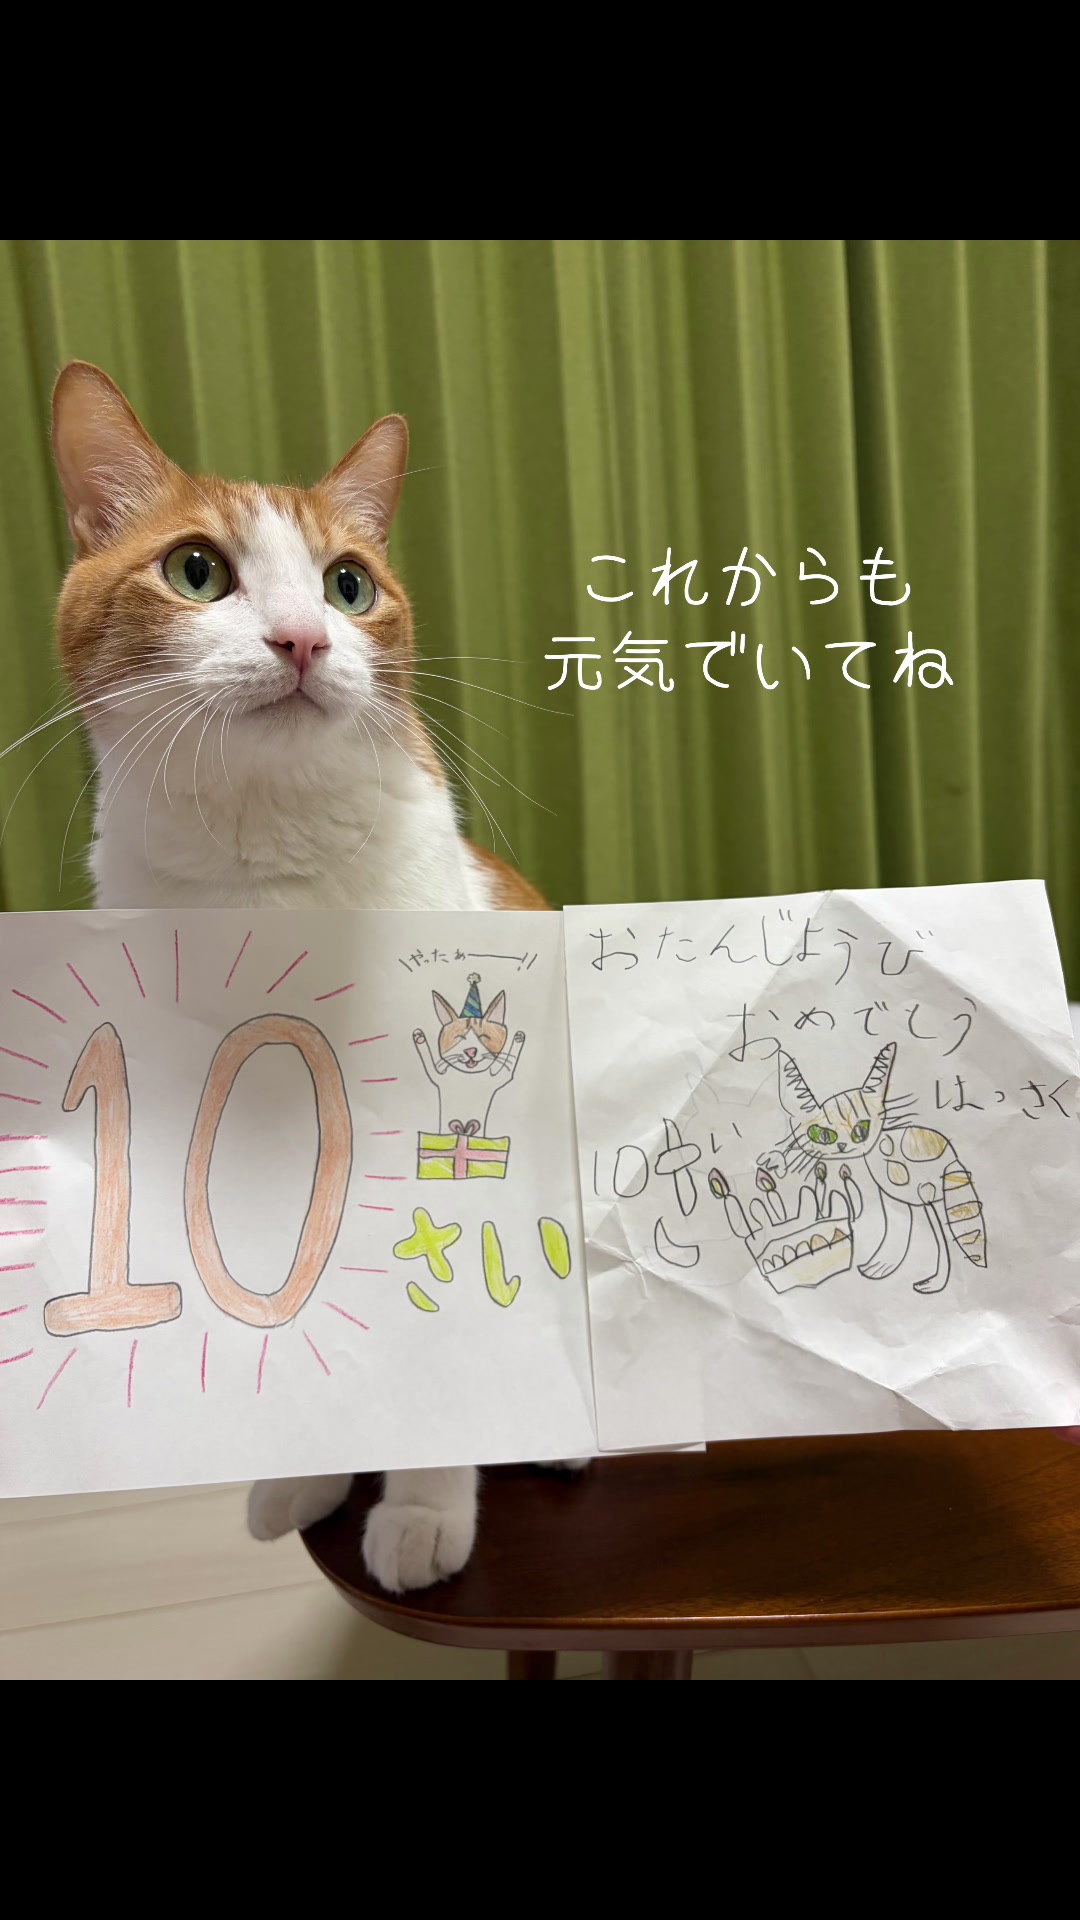 これからも
元気でいてね
\\やったぁー!!//
10
さい
おたんじょうび
おめでとう
はっさく
10さい